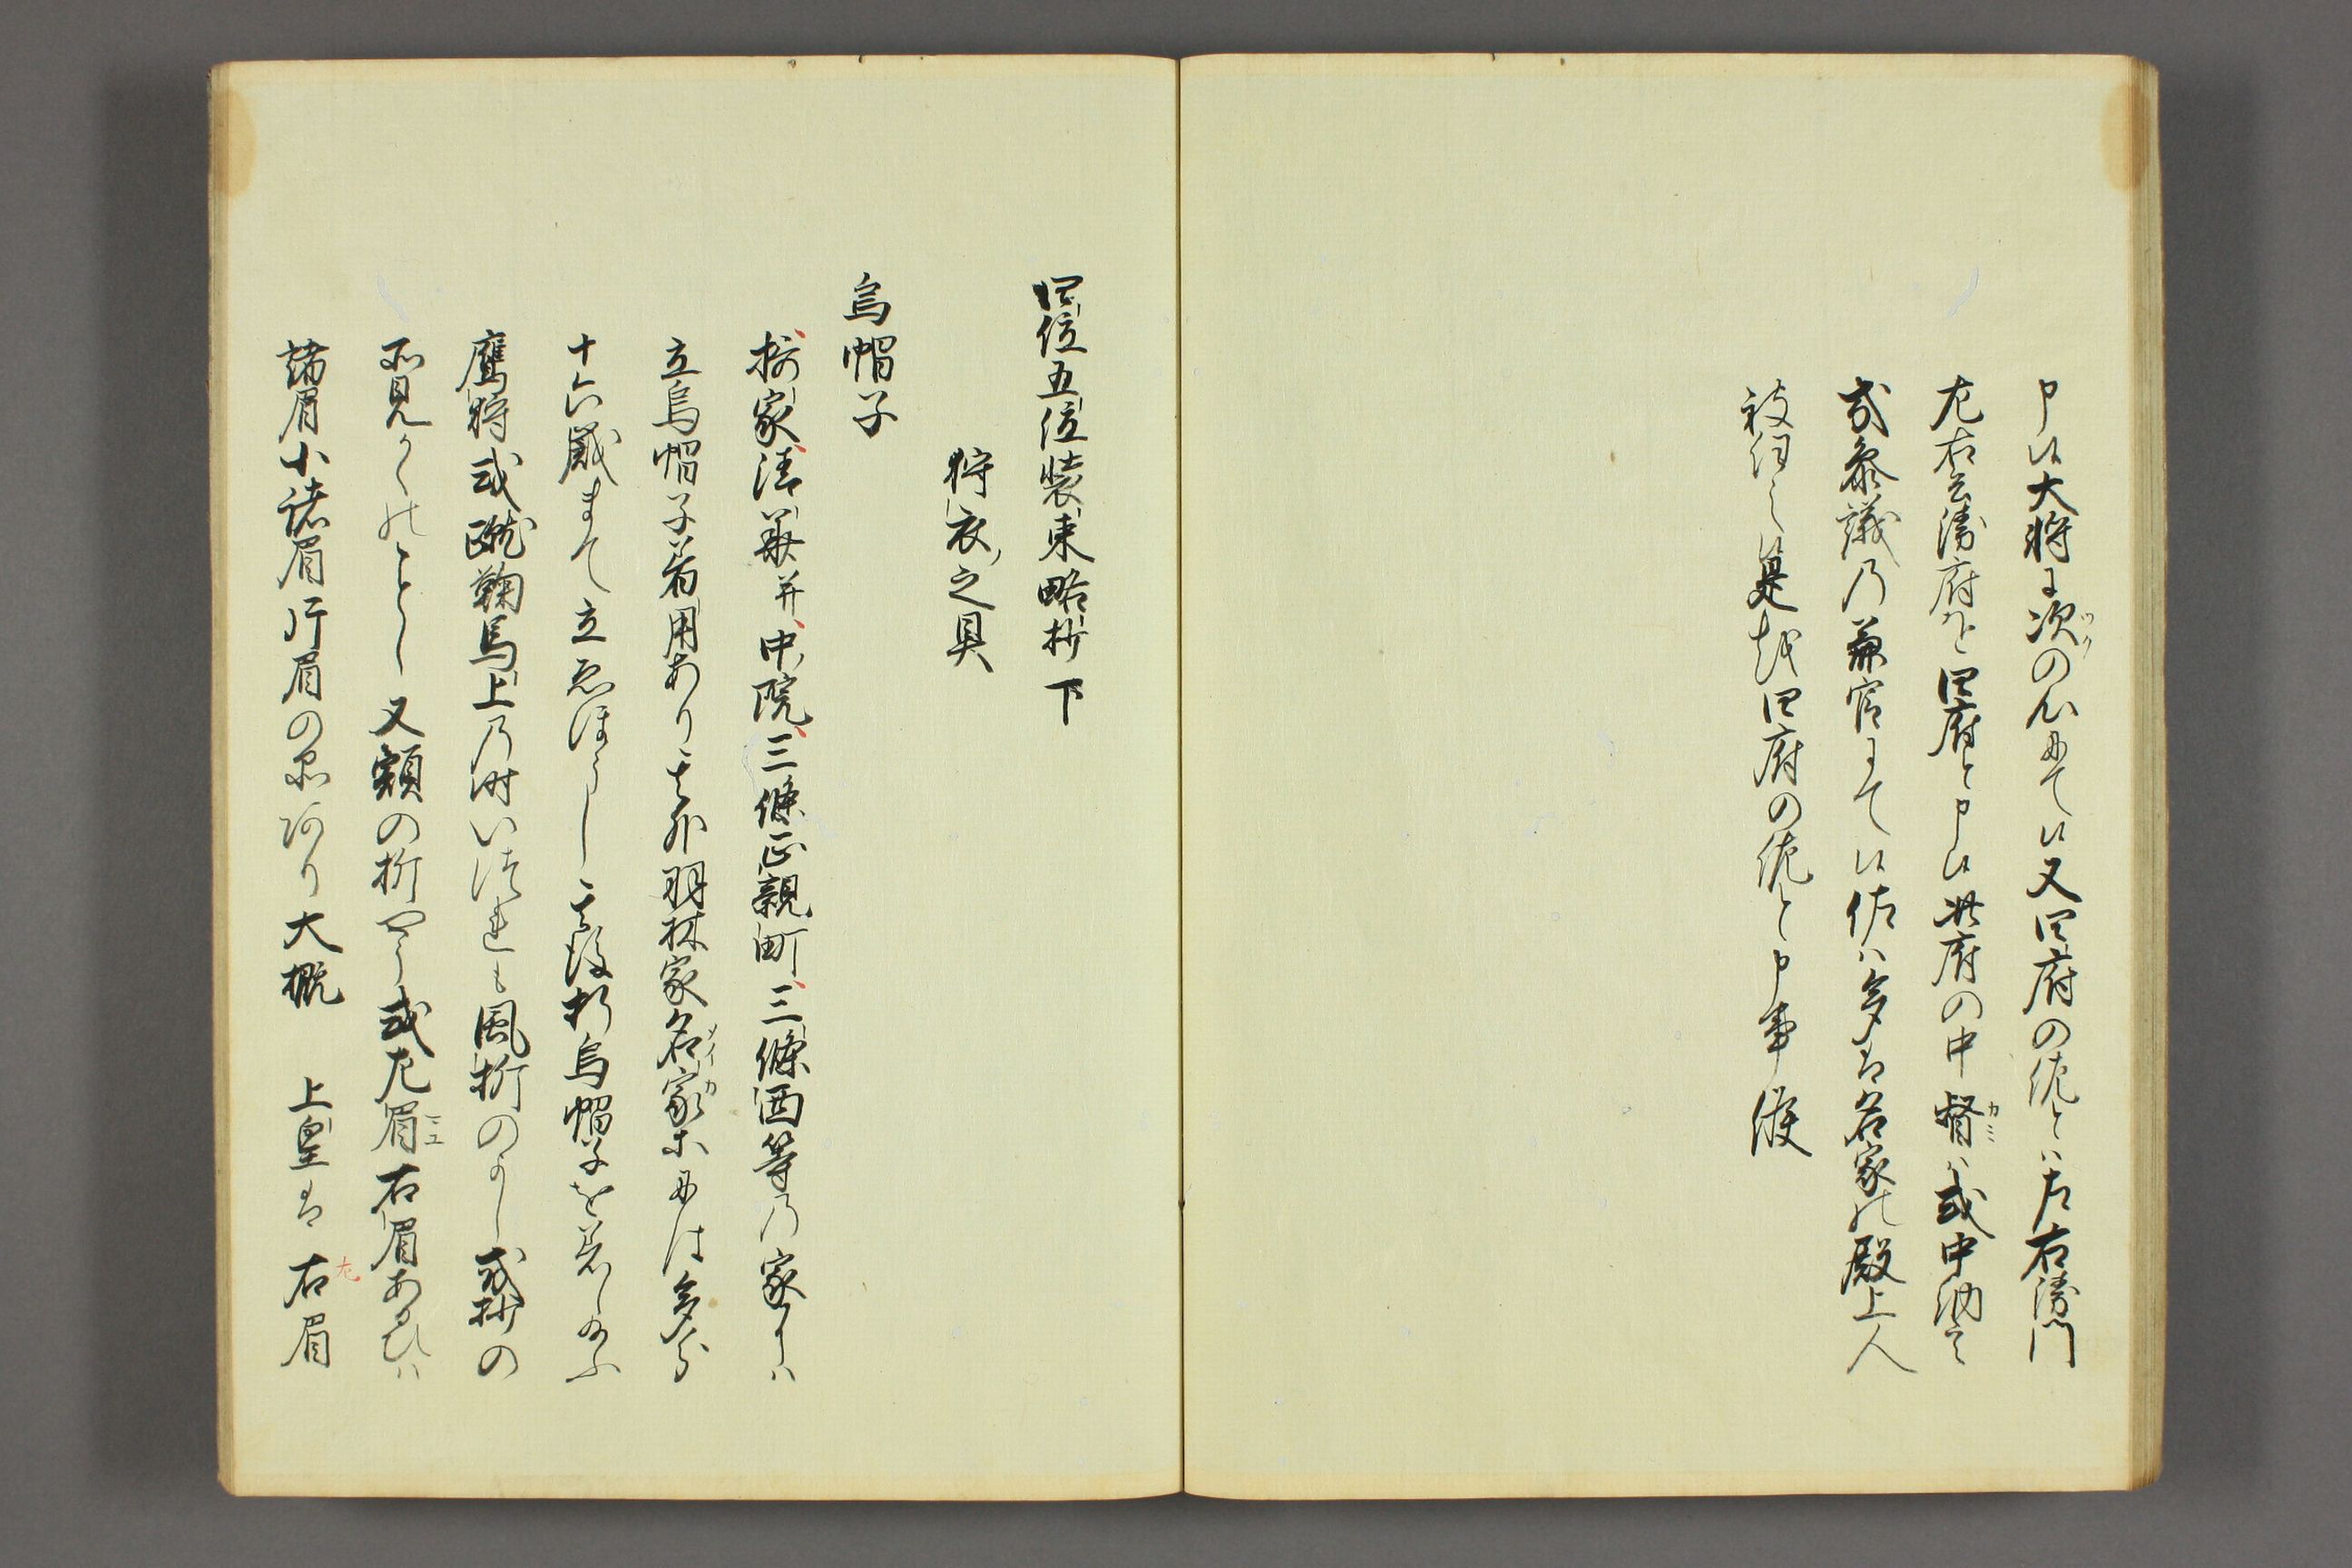 申候大将に次の心にて候又四府の佐とハ左右衛門
左右兵衛府を四府と申候此府の中督ハ或中納言
或参議乃兼官にて候佐ハ多は名家の殿上人
被任之是越四府の佐と申事候
四位五位装束略抄下
狩衣之具
烏帽子
摂家清華并中院三條正親町三條西等乃家にハ
立烏帽子着用あり其外羽林家名家等にハ多分
十六歳まて立ゑほうし其後折烏帽子を着し給ふ
鷹狩或蹴鞠馬上乃時いつれも風折のよし或抄の
所見かくのことし又額の折やう或左眉右眉あるひハ
諸眉小諸眉片眉の品あり大概　上皇は右眉